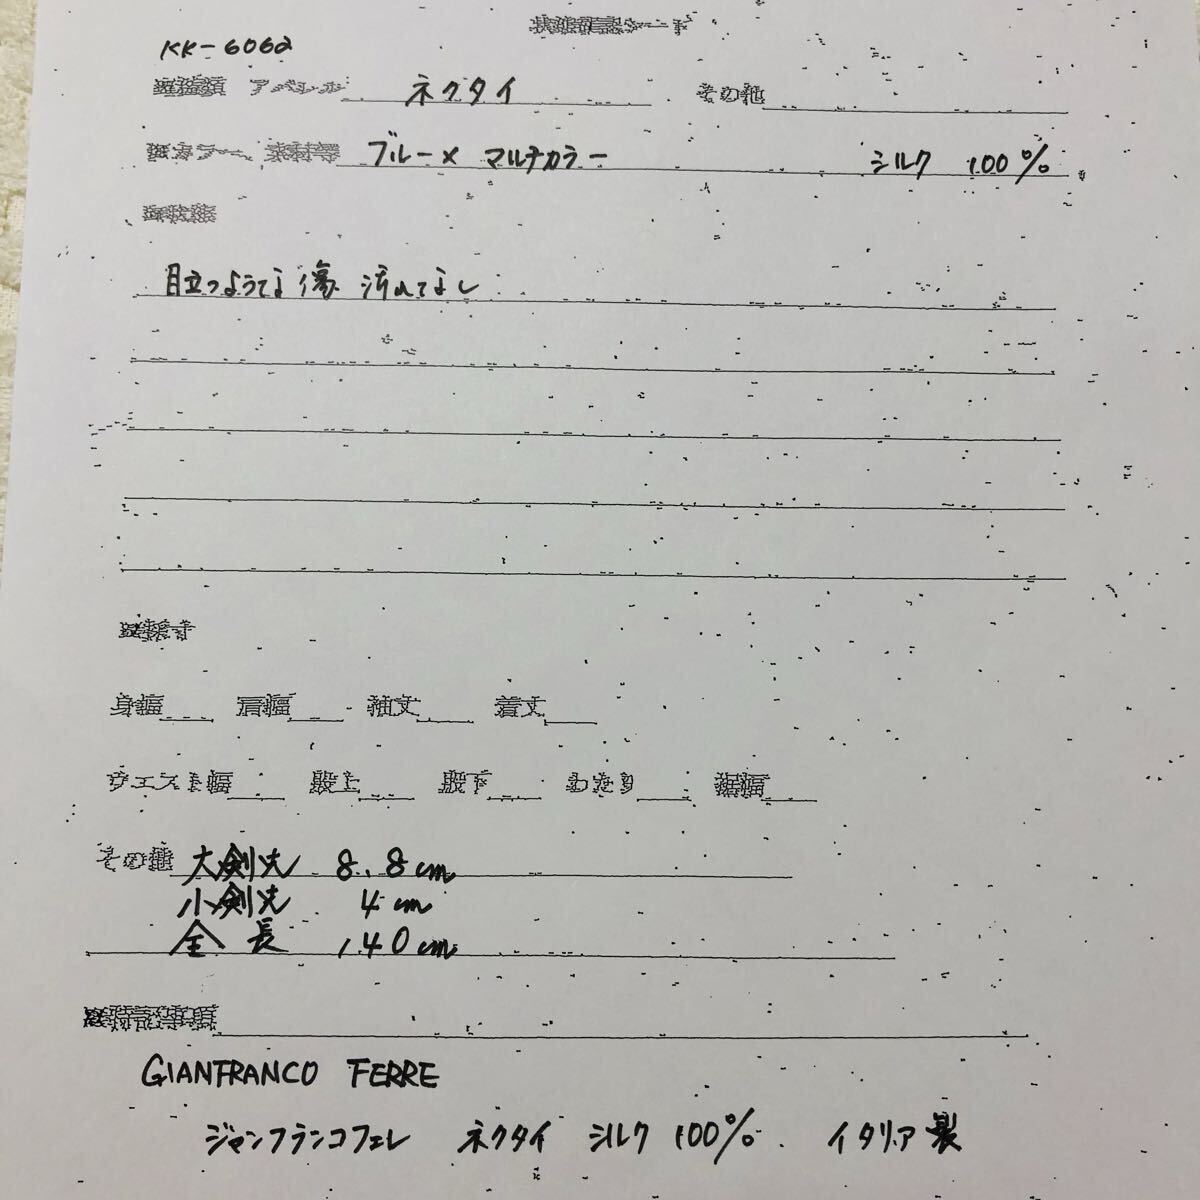 状態確認シート
KK-6062
※種類 アパレル ネクタイ その他
※カラー、素材等 ブルー×マルチカラー シルク 100%
※状態
目立つような傷 汚れなし
※採寸
身幅 肩幅 袖丈 着丈
ウエスト幅 股上 股下 わたり 裾幅
その他 大剣丈 8.8cm
小剣丈 4cm
全長 140cm
※特記事項
GIANFRANCO FERRE
ジャンフランコフェレ ネクタイ シルク100%. イタリア製